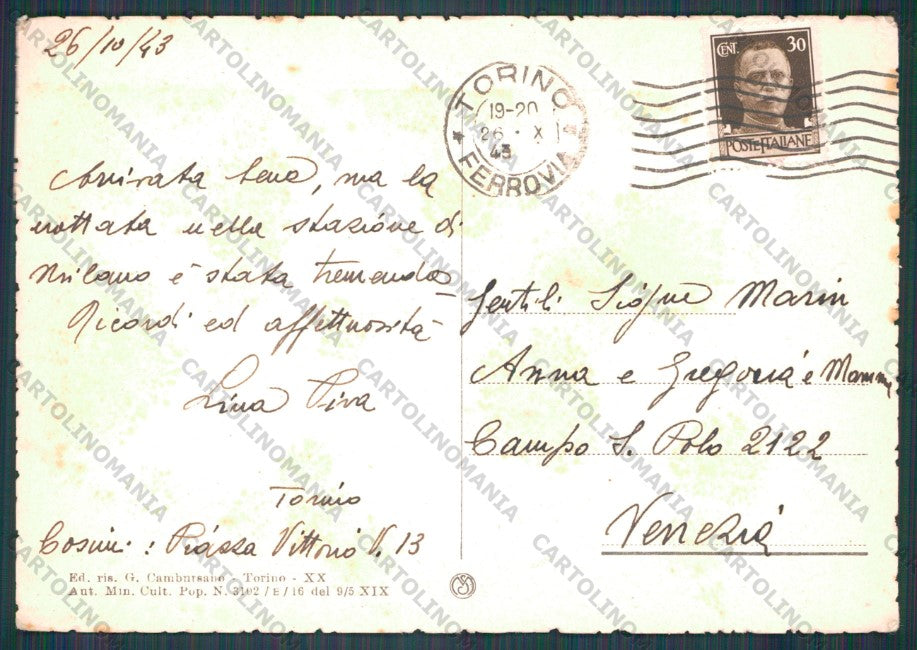 26/10/43
CENT. 30
POSTE ITALIANE
TORINO
19-20
26 · X
43
FERROVIA
Arrivata bene, ma la
nottata nella stazione di
Milano è stata tremenda
Ricordi ed affettuosità
Lina Piva
Torino
Cosini: Piazza Vittorio V. 13
Gentili Sig.ne Marin
Anna e Gregoria e Mamma
Campo S. Polo 2122
Venezia
Ed. ris. G. Cambursano - Torino - XX
Aut. Min. Cult. Pop. N. 3102 / E / 16 del 9/5 XIX
CARTOLINOMANIA